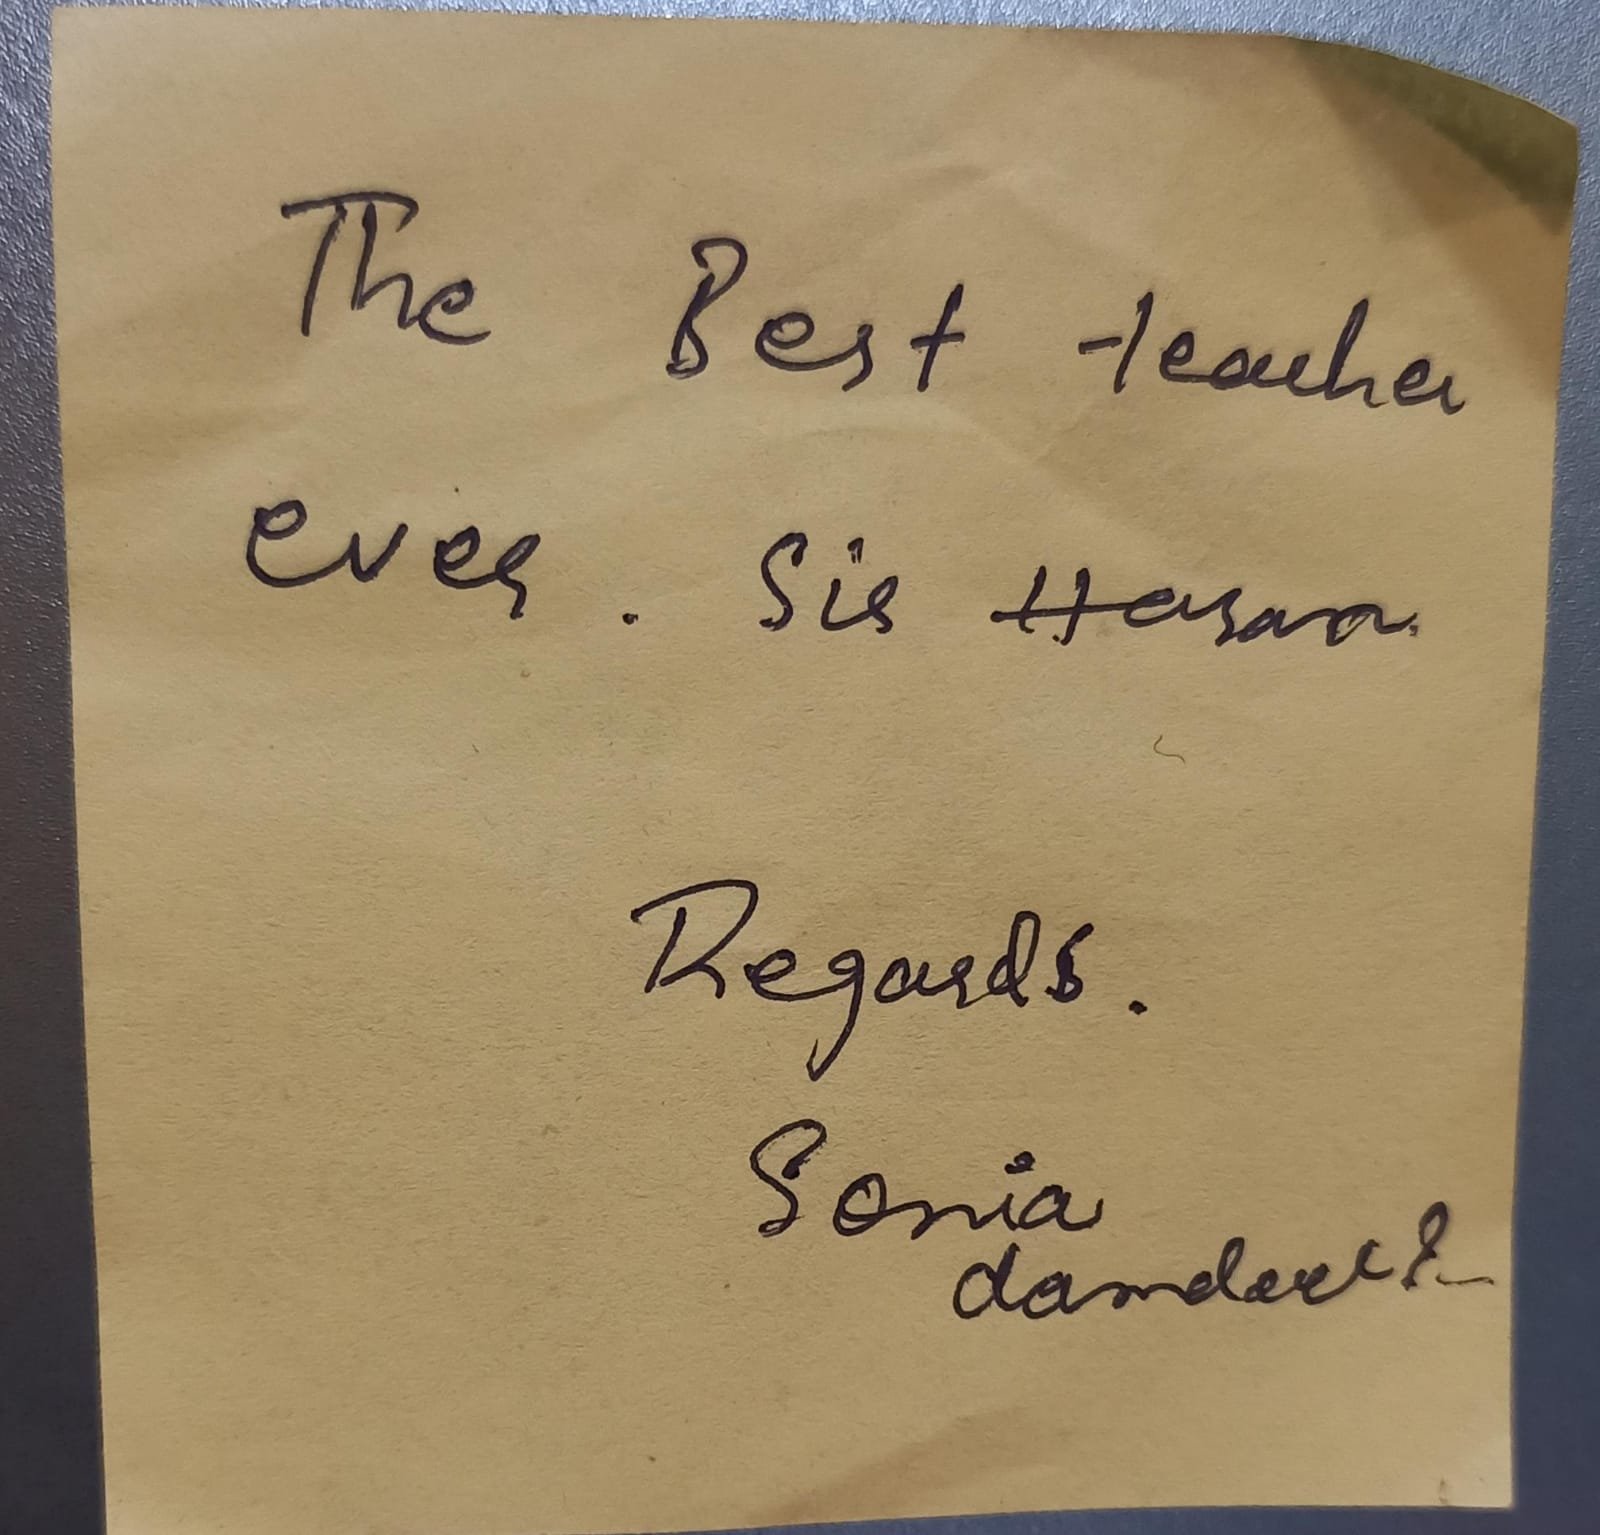 The Best teacher
ever. Sir Hasan.
Regards.
Sonia